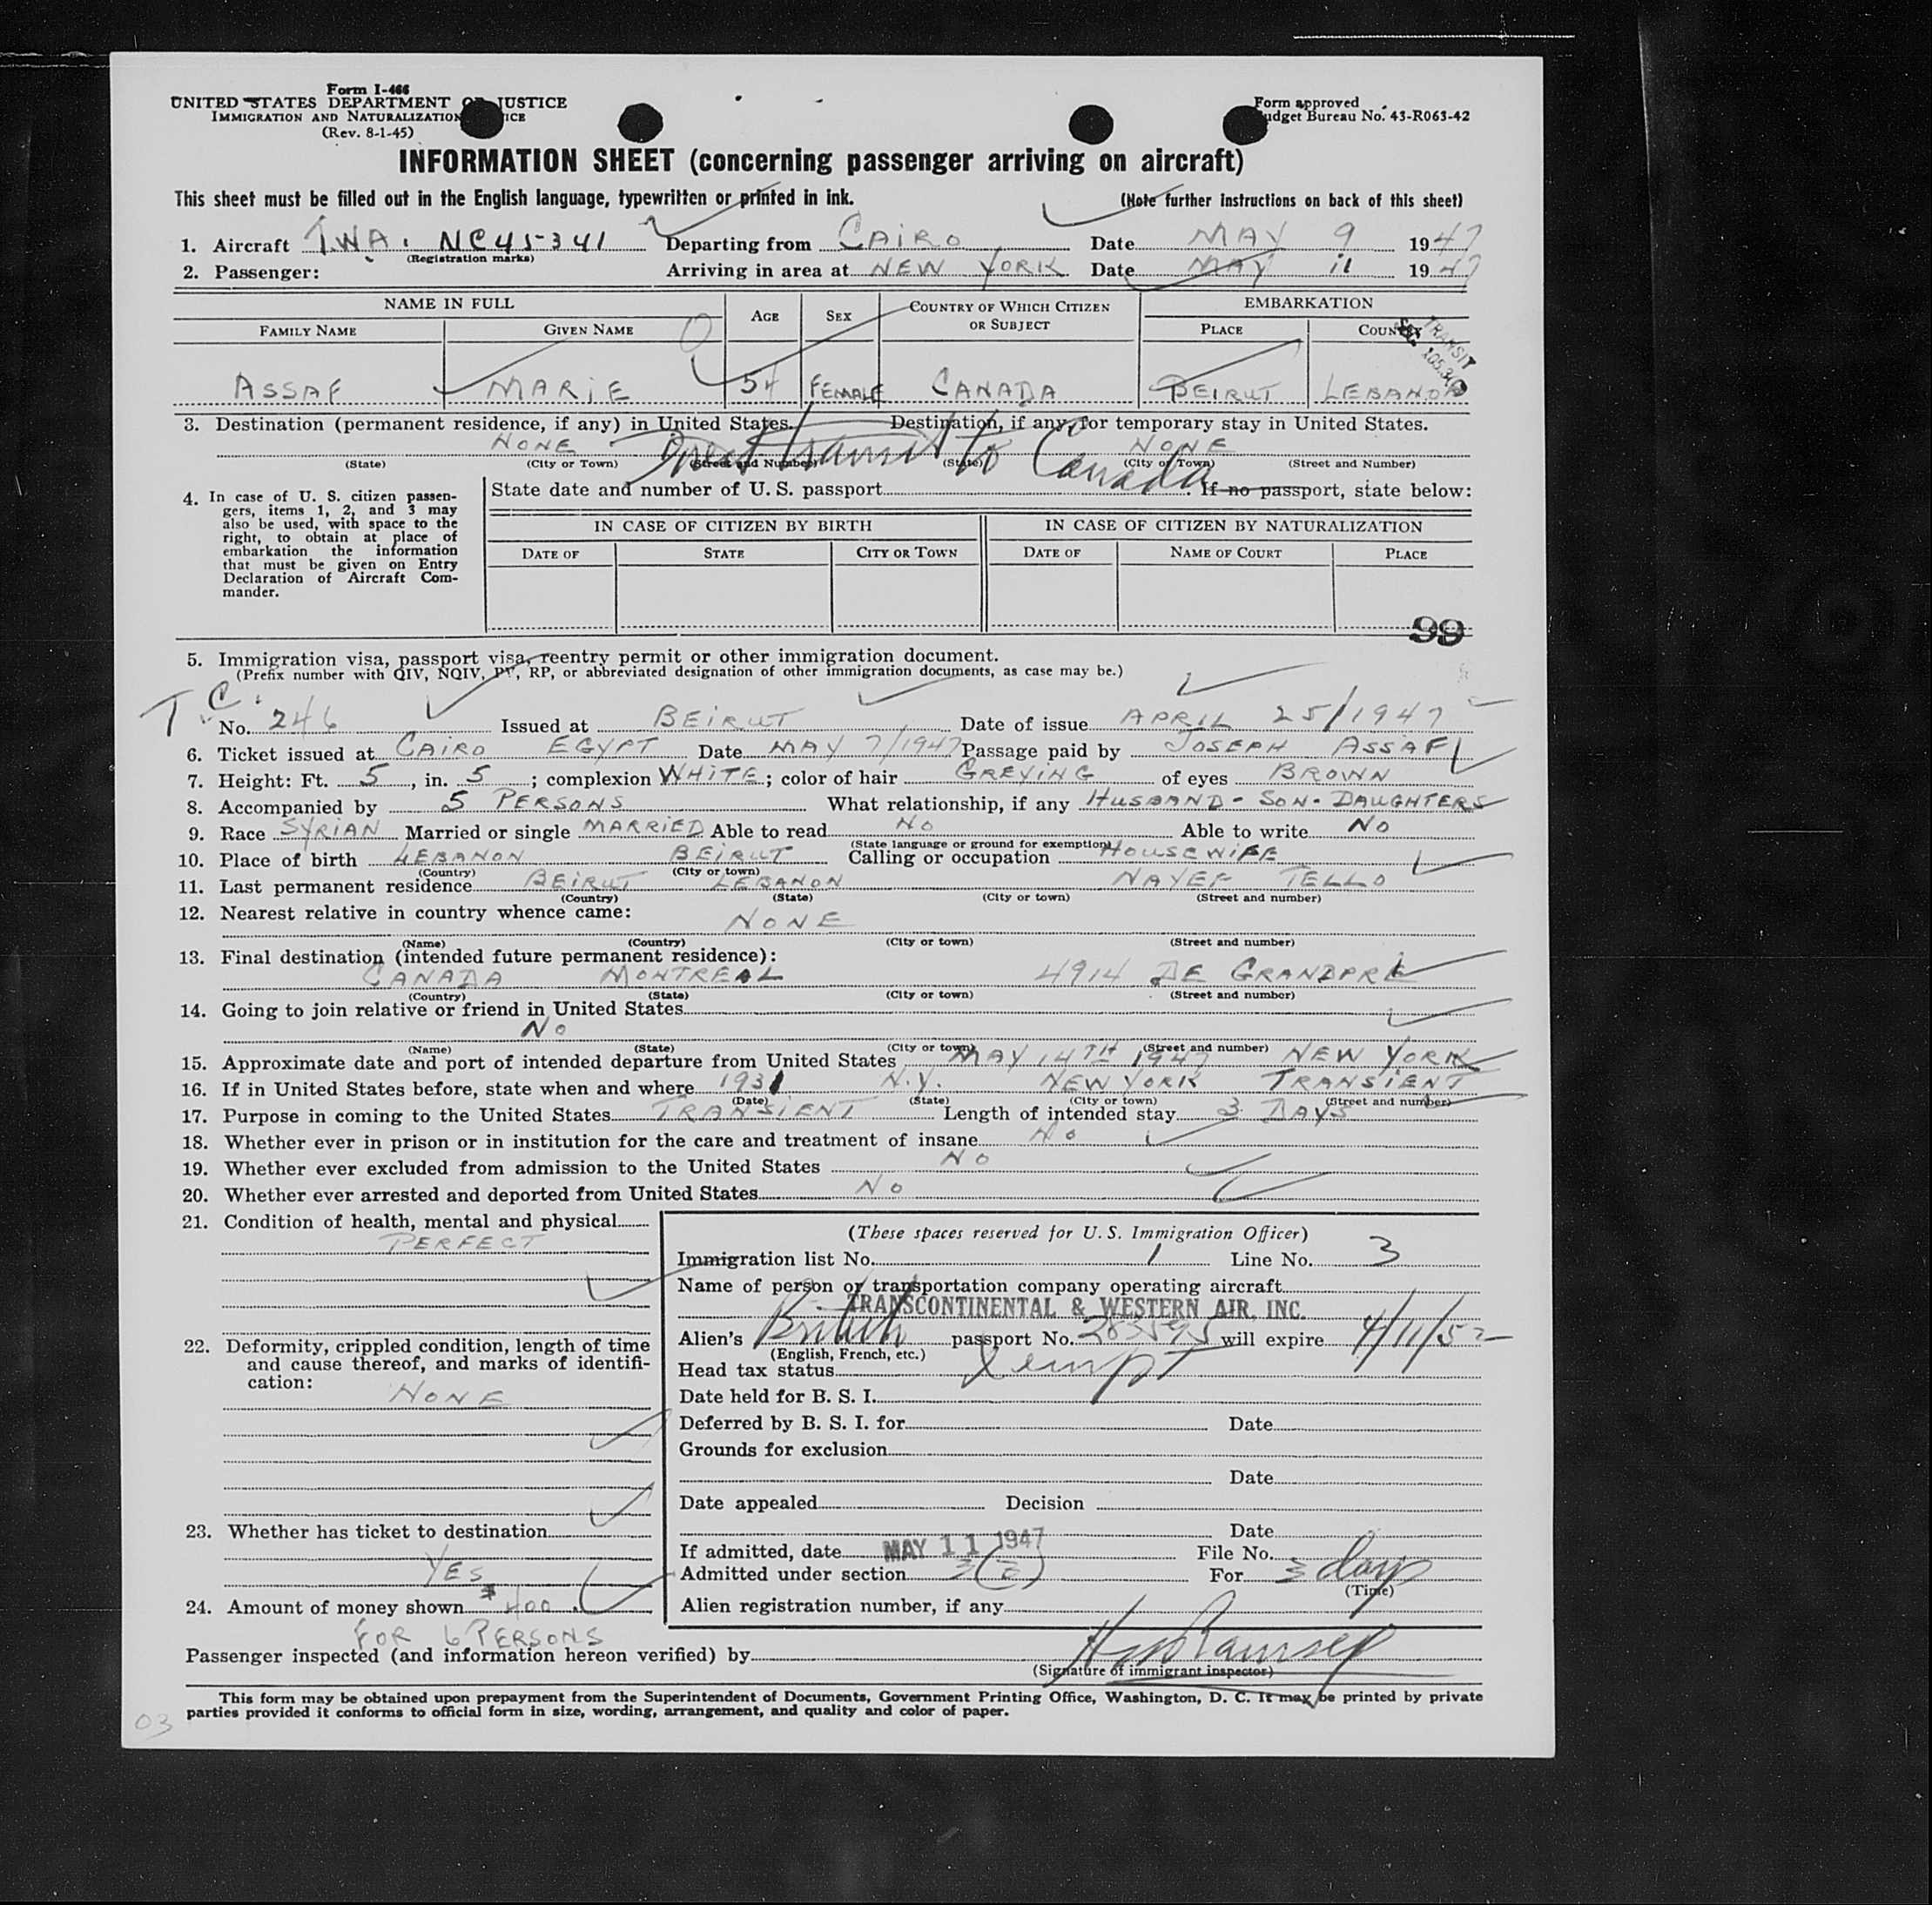 Form I-466
UNITED STATES DEPARTMENT OF JUSTICE
IMMIGRATION AND NATURALIZATION
(Rev. 8-1-45)
Form approved
Budget Bureau No. 43-R063-42
INFORMATION SHEET (concerning passenger arriving on aircraft)
This sheet must be filled out in the English language, typewritten or printed in ink. (Note further instructions on back of this sheet)
1. Aircraft T.W.A. NC45341 Departing from CAIRO Date MAY 9 1947
(Registration marks)
2. Passenger: Arriving in area at NEW YORK Date MAY 11 1947
NAME IN FULL AGE SEX COUNTRY OF WHICH CITIZEN OR SUBJECT EMBARKATION
FAMILY NAME GIVEN NAME PLACE COUNTRY
TRANSIT
ASSAF MARIE 54 FEMALE CANADA BEIRUT LEBANON
3. Destination (permanent residence, if any) in United States. Destination, if any, for temporary stay in United States.
NONE Direct transit to Canada NONE
(State) (City or Town) (Street and Number) (State) (City or Town) (Street and Number)
4. In case of U. S. citizen passengers, items 1, 2, and 3 may also be used, with space to the right, to obtain at place of embarkation the information that must be given on Entry Declaration of Aircraft Commander.
State date and number of U. S. passport. If no passport, state below:
IN CASE OF CITIZEN BY BIRTH IN CASE OF CITIZEN BY NATURALIZATION
DATE OF STATE CITY OR TOWN DATE OF NAME OF COURT PLACE
99
5. Immigration visa, passport visa, reentry permit or other immigration document.
(Prefix number with QIV, NQIV, PV, RP, or abbreviated designation of other immigration documents, as case may be.)
T.C.
No. 246 Issued at BEIRUT Date of issue APRIL 25/1947
6. Ticket issued at CAIRO EGYPT Date MAY 7/1947 Passage paid by JOSEPH ASSAF
7. Height: Ft. 5, in. 5; complexion WHITE; color of hair GREYING of eyes BROWN
8. Accompanied by 5 PERSONS What relationship, if any HUSBAND - SON - DAUGHTERS
9. Race SYRIAN Married or single MARRIED Able to read NO Able to write NO
(State language or ground for exemption)
10. Place of birth LEBANON BEIRUT Calling or occupation HOUSEWIFE
(Country) (City or town)
11. Last permanent residence BEIRUT LEBANON NAYEF TELLO
(Country) (State) (City or town) (Street and number)
12. Nearest relative in country whence came: NONE
(Name) (Country) (City or town) (Street and number)
13. Final destination (intended future permanent residence):
CANADA MONTREAL 4914 DE GRANDPRE
(Country) (State) (City or town) (Street and number)
14. Going to join relative or friend in United States
NO
(Name) (State) (City or town) (Street and number)
15. Approximate date and port of intended departure from United States MAY 14TH 1947 NEW YORK
16. If in United States before, state when and where 1931 N.Y. NEW YORK TRANSIENT
(Date) (State) (City or town) (Street and number)
17. Purpose in coming to the United States TRANSIENT Length of intended stay 3 DAYS
18. Whether ever in prison or in institution for the care and treatment of insane NO
19. Whether ever excluded from admission to the United States NO
20. Whether ever arrested and deported from United States NO
21. Condition of health, mental and physical
PERFECT
22. Deformity, crippled condition, length of time and cause thereof, and marks of identification:
NONE
23. Whether has ticket to destination
YES
24. Amount of money shown $400.
FOR 6 PERSONS
(These spaces reserved for U. S. Immigration Officer)
Immigration list No. 1 Line No. 3
Name of person or transportation company operating aircraft
TRANSCONTINENTAL & WESTERN AIR, INC.
Alien's British passport No. 283595 will expire 4/11/52
(English, French, etc.)
Head tax status Exempt
Date held for B. S. I.
Deferred by B. S. I. for Date
Grounds for exclusion
Date
Date appealed Decision
Date
If admitted, date MAY 11 1947 File No.
Admitted under section 3(2) For 3 days
(Time)
Alien registration number, if any
Passenger inspected (and information hereon verified) by Ramsey
(Signature of immigrant inspector)
This form may be obtained upon prepayment from the Superintendent of Documents, Government Printing Office, Washington, D. C. It may be printed by private
parties provided it conforms to official form in size, wording, arrangement, and quality and color of paper.
03